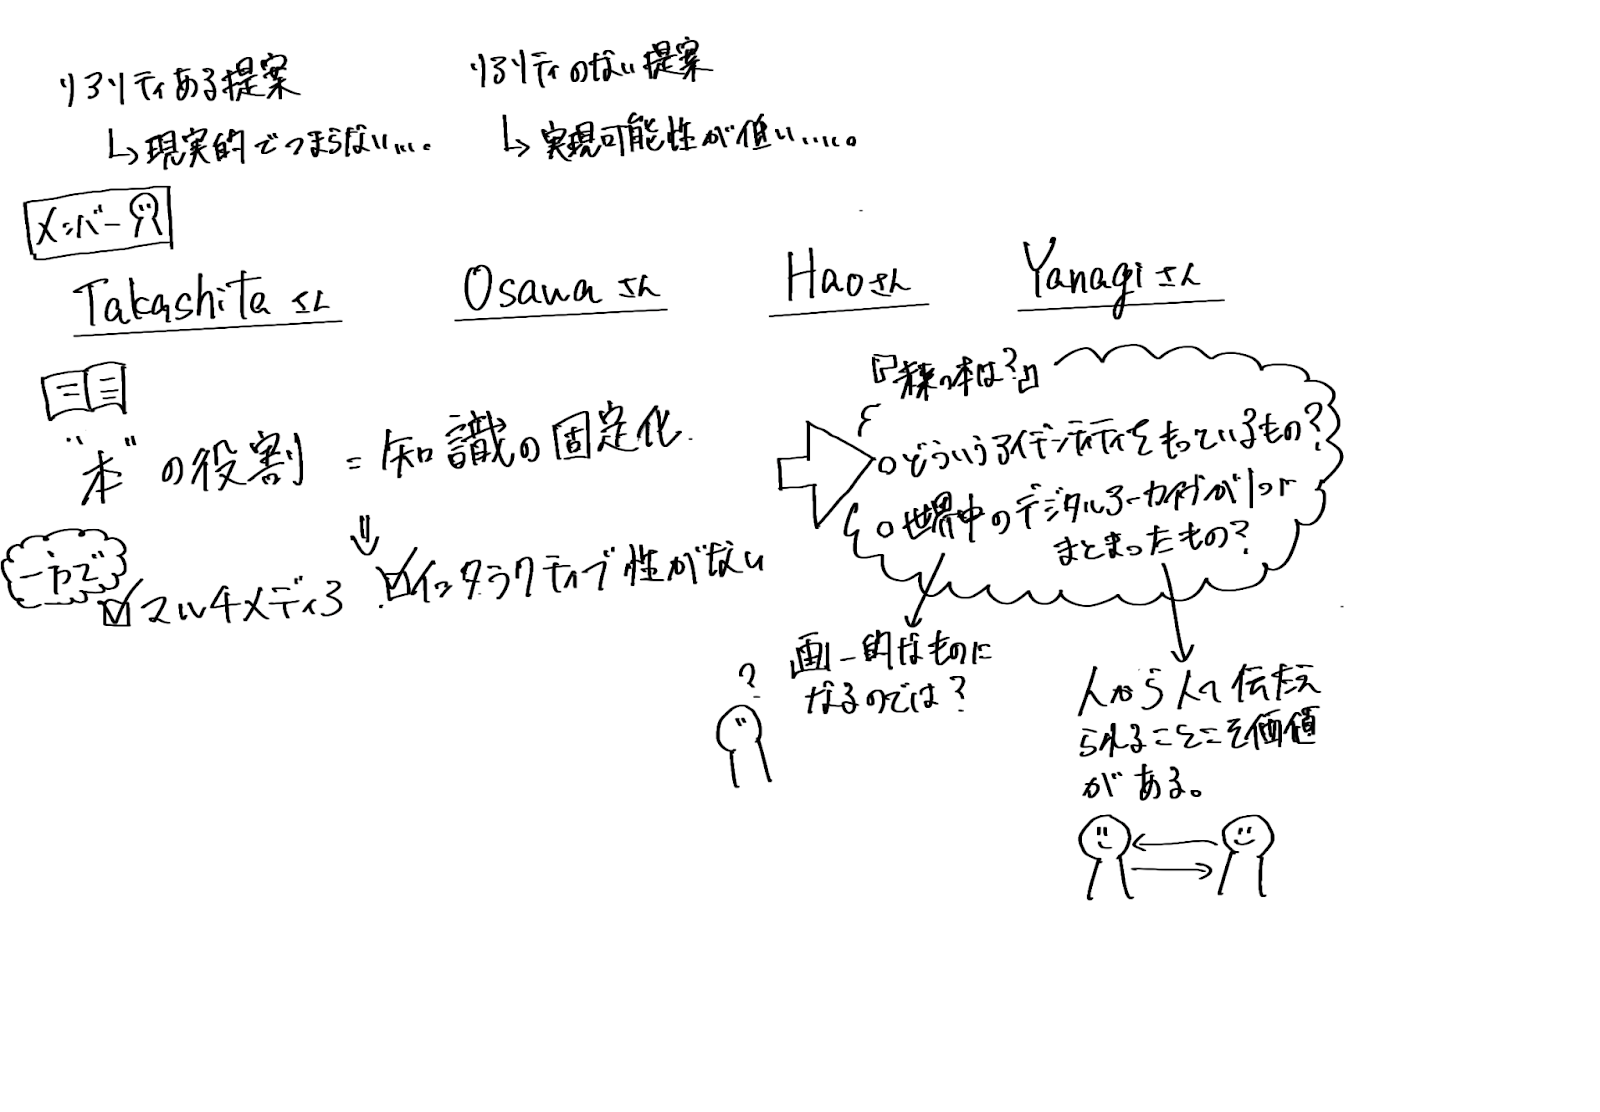 リアリティある提案
リアリティのない提案
↳現実的でつまらない....。
↳実現可能性が低い.....。
メンバー
Takashitaさん
Osawaさん
Haoさん
Yanagiさん
『未来の本は?』
"本"の役割 = 知識の固定化
○どういうアイデンティティをもっているもの?
○世界中のデジタルアーカイブが1つに
まとまったもの?
一方で
☑マルチメディア
☑インタラクティブ性がない
画一的なものに
なるのでは?
?
人から人へ伝えた
られることこそ価値
がある。